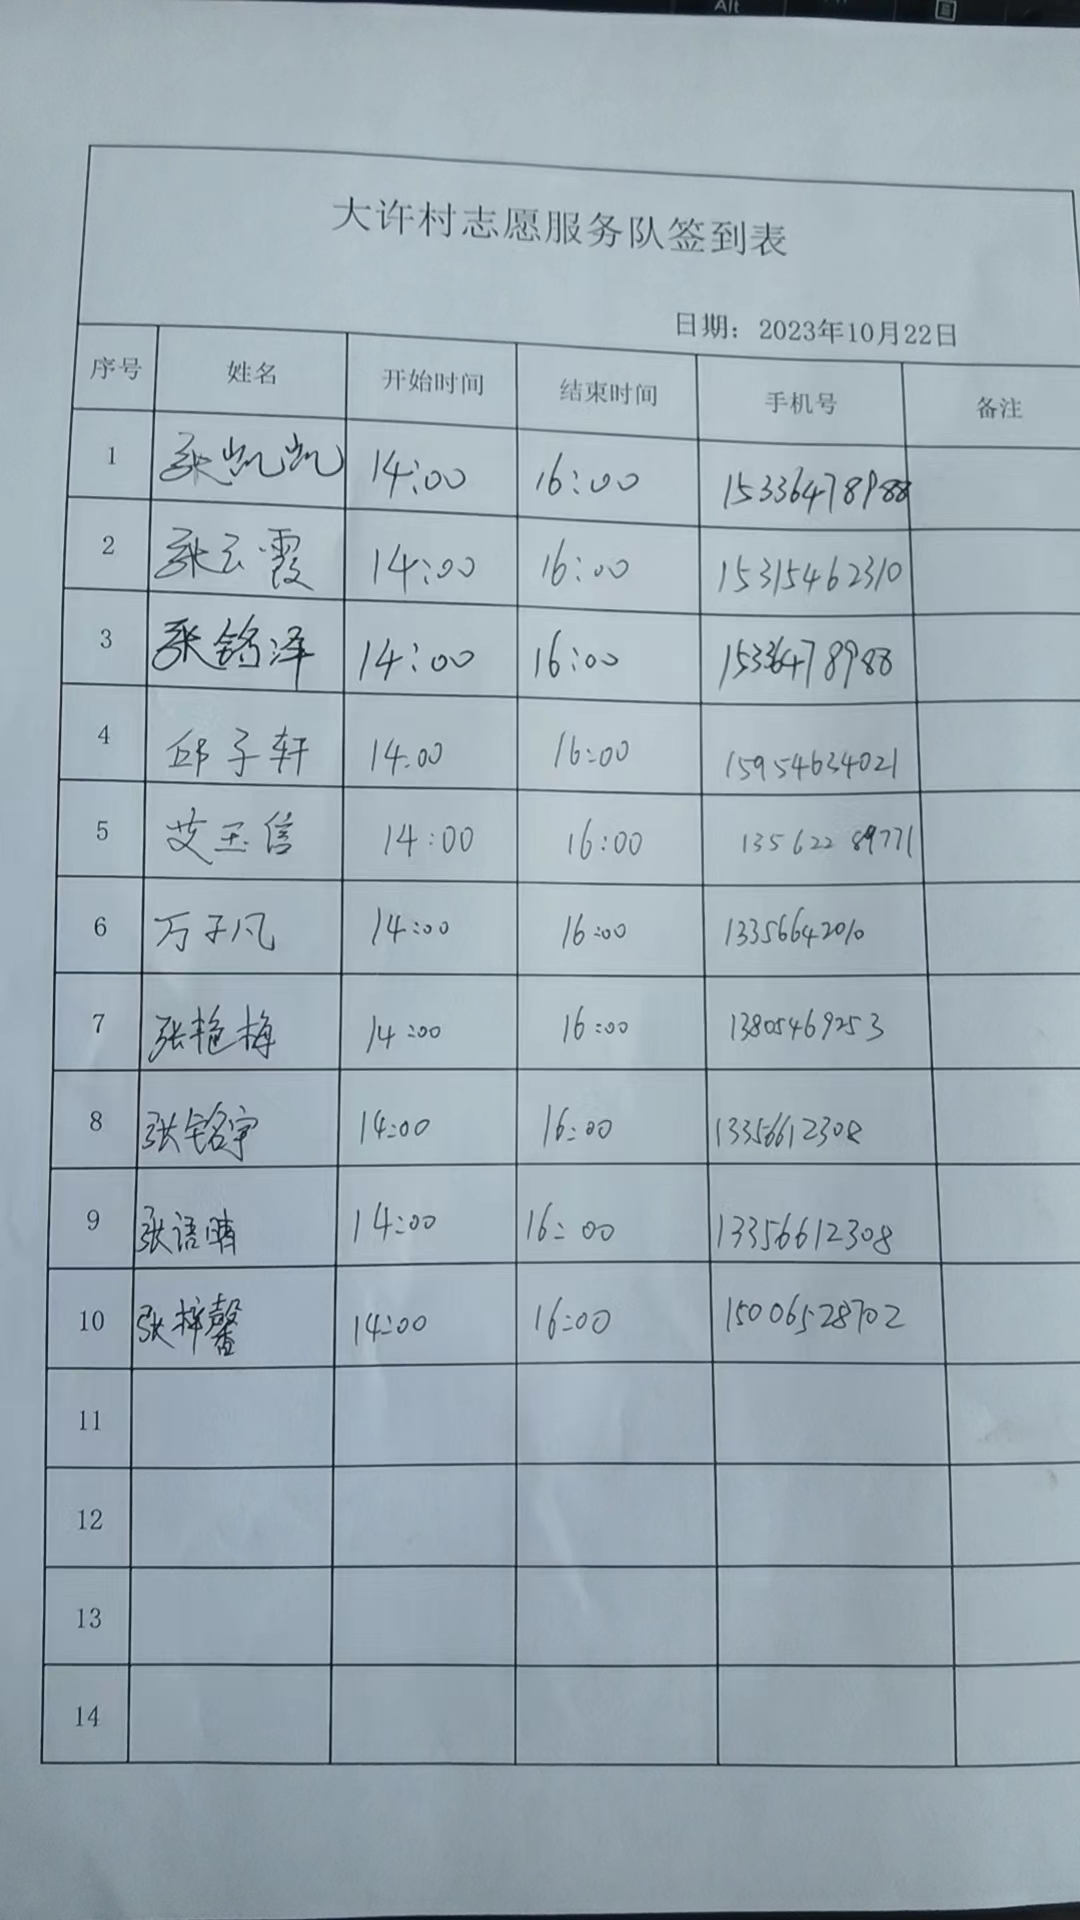 Alt
大许村志愿服务队签到表
日期：2023年10月22日
序号 姓名 开始时间 结束时间 手机号 备注
1 张凯凯 14:00 16:00 15336478988
2 张云霞 14:00 16:00 15315462310
3 张铭泽 14:00 16:00 15336478988
4 邱子轩 14:00 16:00 15954634021
5 艾玉信 14:00 16:00 13562289771
6 万子凡 14:00 16:00 13356642010
7 张艳梅 14:00 16:00 13805469253
8 张铭宇 14:00 16:00 13356612308
9 张语晴 14:00 16:00 13356612308
10 张梓馨 14:00 16:00 15006528702
11
12
13
14